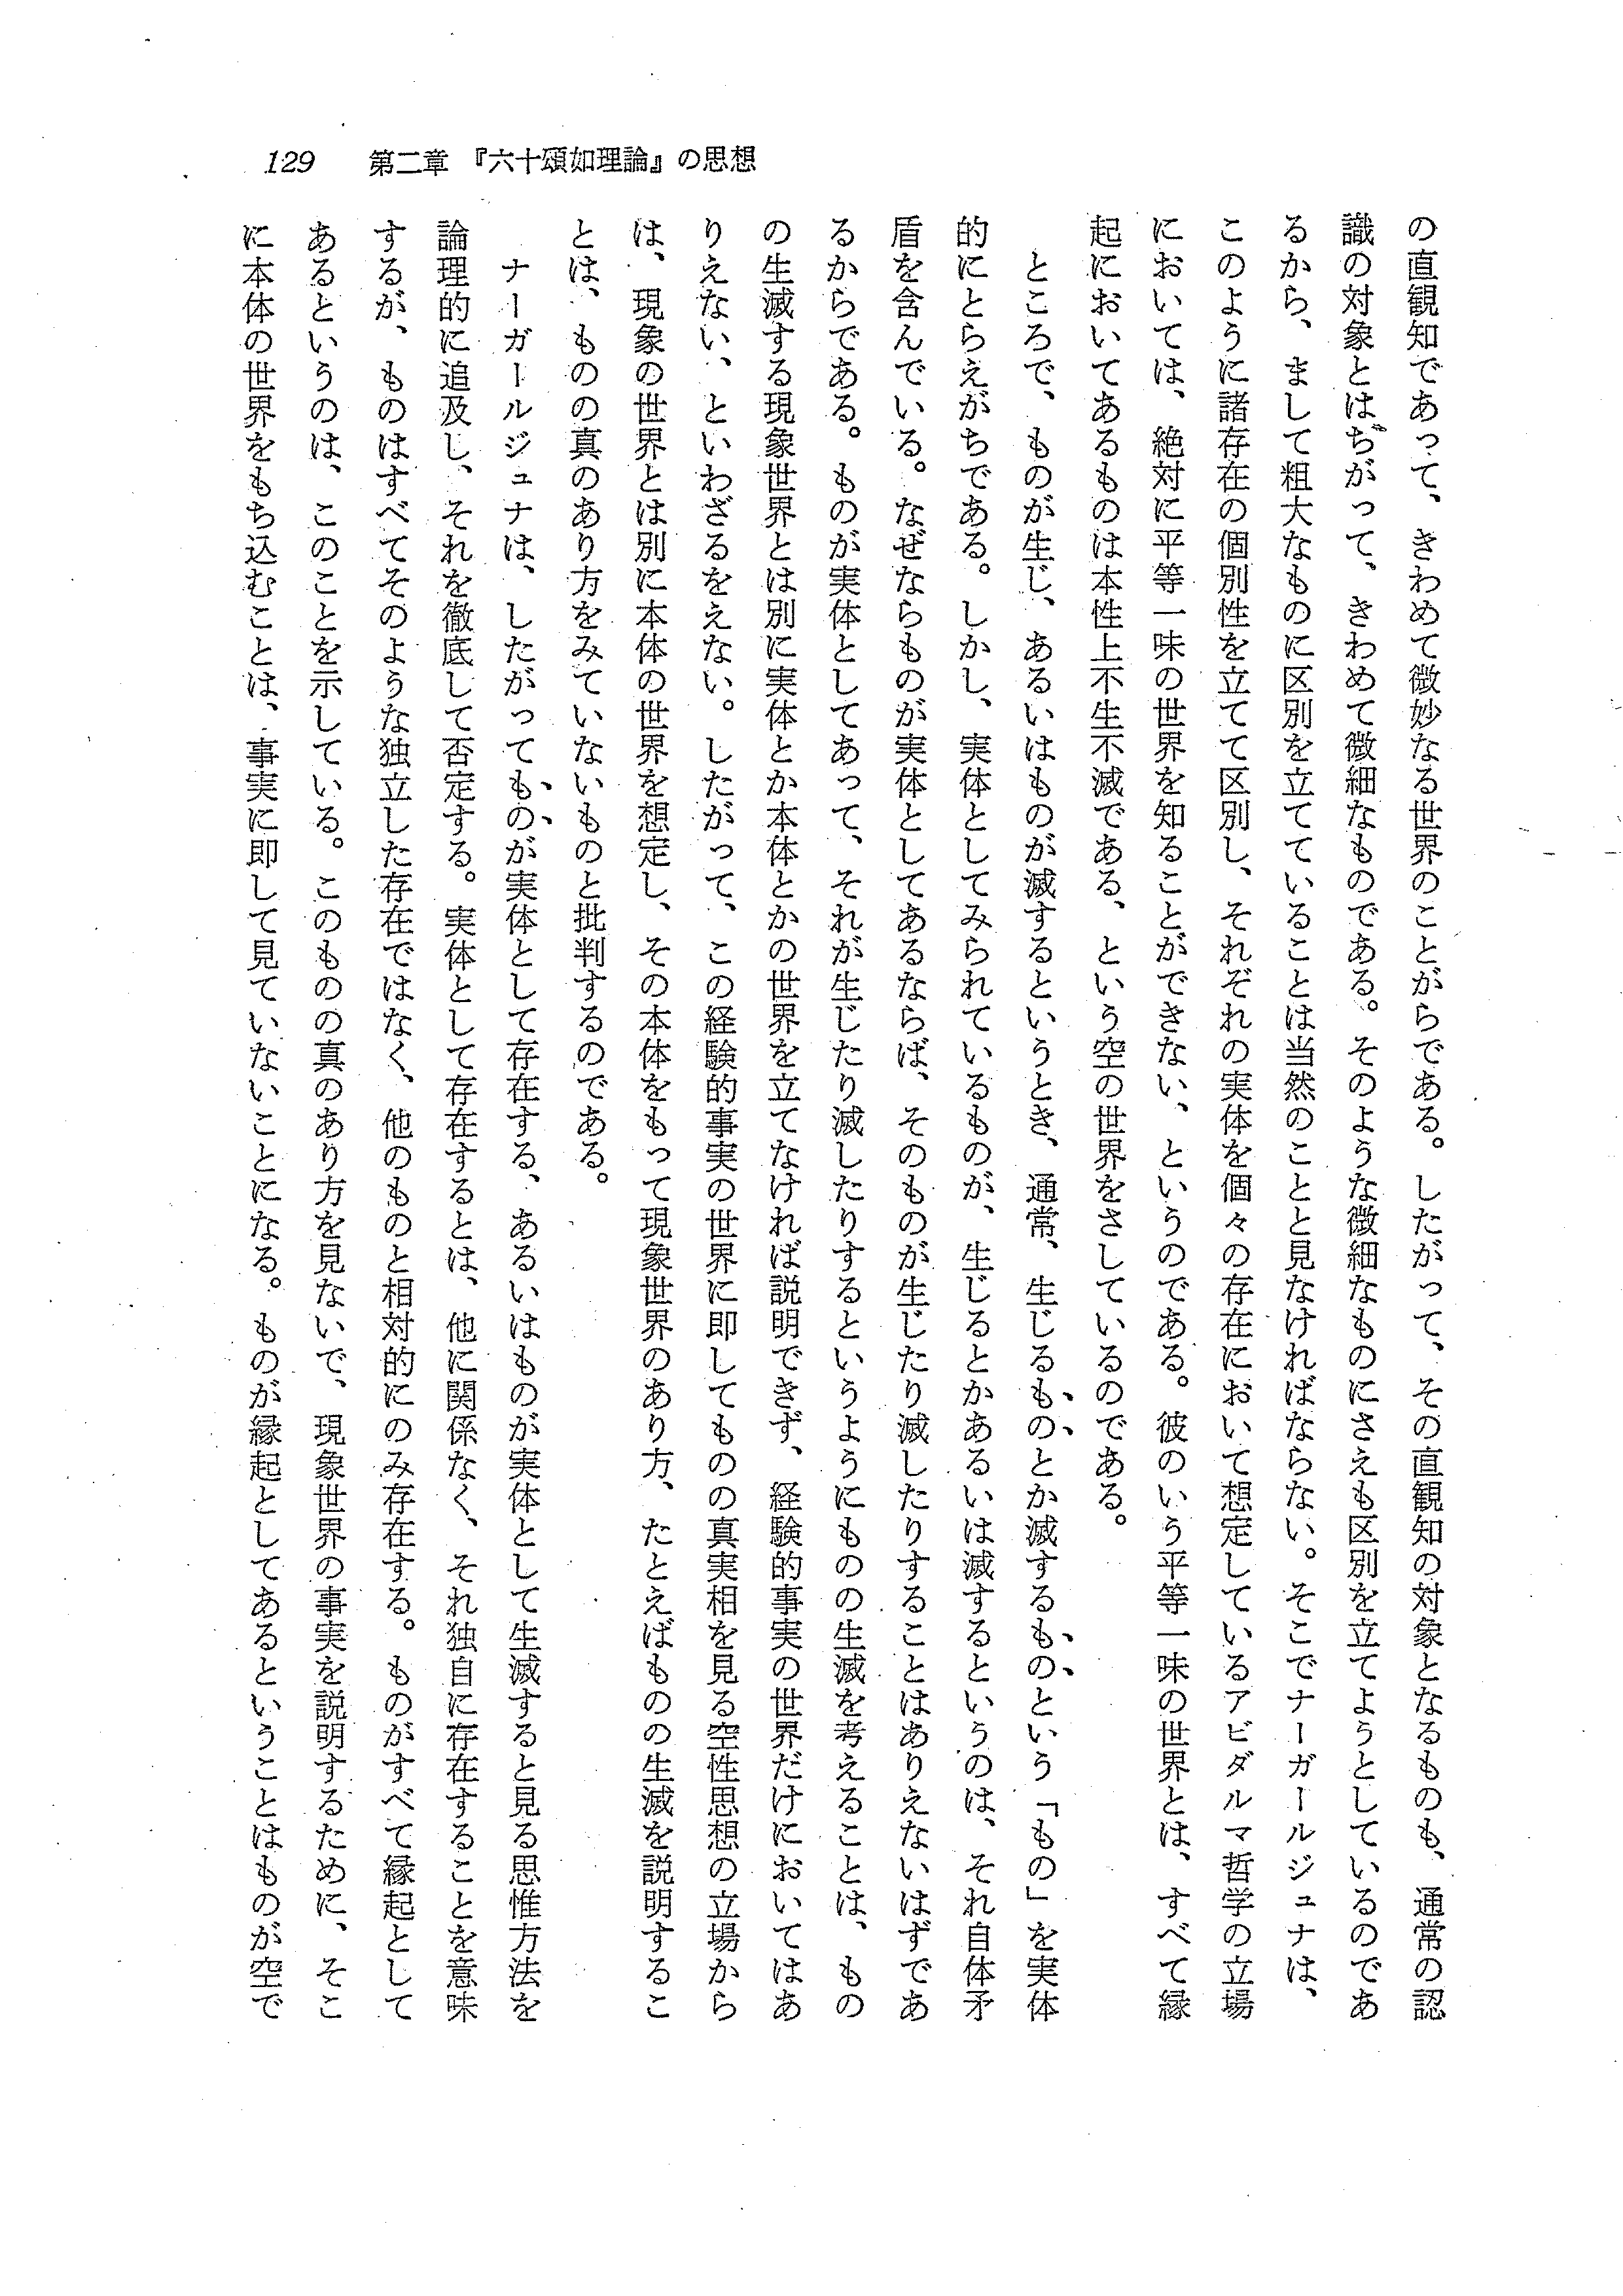 129 第二章 『六十頌如理論』の思想
の直観知であって、きわめて微妙なる世界のことがらである。したがって、その直観知の対象となるものも、通常の認
識の対象とはぢがって、きわめて微細なものである。そのような微細なものにさえも区別を立てようとしているのであ
るから、まして粗大なものに区別を立てていることは当然のことと見なければならない。そこでナーガールジュナは、
このように諸存在の個別性を立てて区別し、それぞれの実体を個々の存在において想定しているアビダルマ哲学の立場
においては、絶対に平等一味の世界を知ることができない、というのである。彼のいう平等一味の世界とは、すべて縁
起においてあるものは本性上不生不滅である、という空の世界をさしているのである。
ところで、ものが生じ、あるいはものが滅するというとき、通常、生じるものとか滅するものという「もの」を実体
的にとらえがちである。しかし、実体としてみられているものが、生じるとかあるいは滅するというのは、それ自体矛
盾を含んでいる。なぜならものが実体としてあるならば、そのものが生じたり滅したりすることはありえないはずであ
るからである。ものが実体としてあって、それが生じたり滅したりするというようにものの生滅を考えることは、もの
の生滅する現象世界とは別に実体とか本体とかの世界を立てなければ説明できず、経験的事実の世界だけにおいてはあ
りえない、といわざるをえない。したがって、この経験的事実の世界に即してものの真実相を見る空性思想の立場から
は、現象の世界とは別に本体の世界を想定し、その本体をもって現象世界のあり方、たとえばものの生滅を説明するこ
とは、ものの真のあり方をみていないものと批判するのである。
ナーガールジュナは、したがってものが実体として存在する、あるいはものが実体として生滅すると見る思惟方法を
論理的に追及し、それを徹底して否定する。実体として存在するとは、他に関係なく、それ独自に存在することを意味
するが、ものはすべてそのような独立した存在ではなく、他のものと相対的にのみ存在する。ものがすべて縁起として
あるというのは、このことを示している。このものの真のあり方を見ないで、現象世界の事実を説明するために、そこ
に本体の世界をもち込むことは、事実に即して見ていないことになる。ものが縁起としてあるということはものが空で